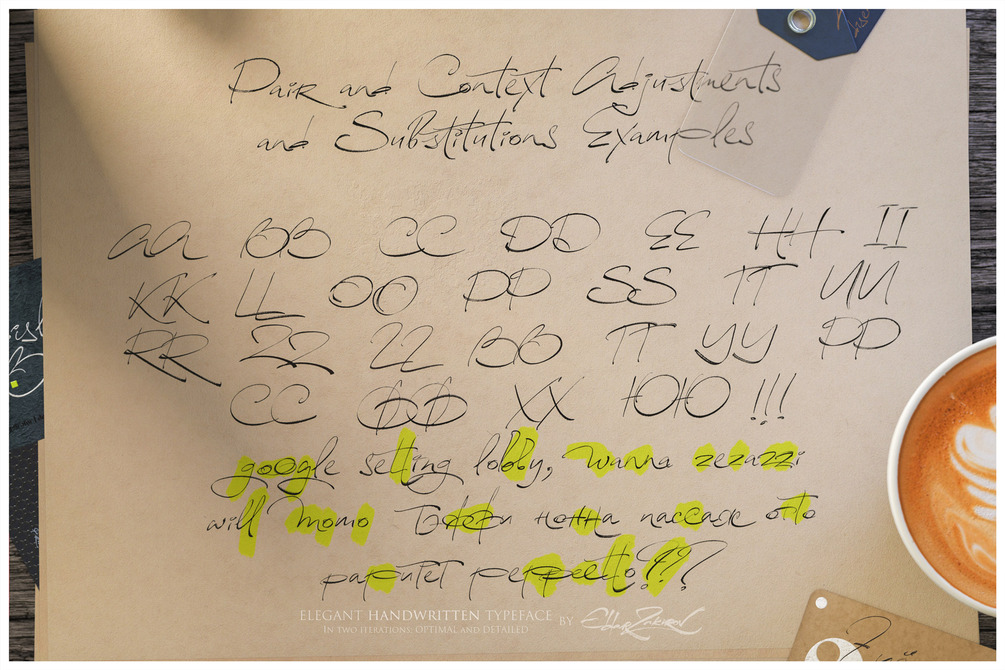 Pair and Context Adjustments
and Substitutions Examples
AA BB CC DD EE HH II
KK LL OO PP SS TT UU
RR ZZ 22 BB TT YY PP
CC ФФ XX ЮЮ !!!
google setting lobby, wanna zezazzi
will momo нонна пассаж отто
раритет???
ELEGANT HANDWRITTEN TYPEFACE BY Eldar Zakirov
IN TWO ITERATIONS: OPTIMAL AND DETAILED